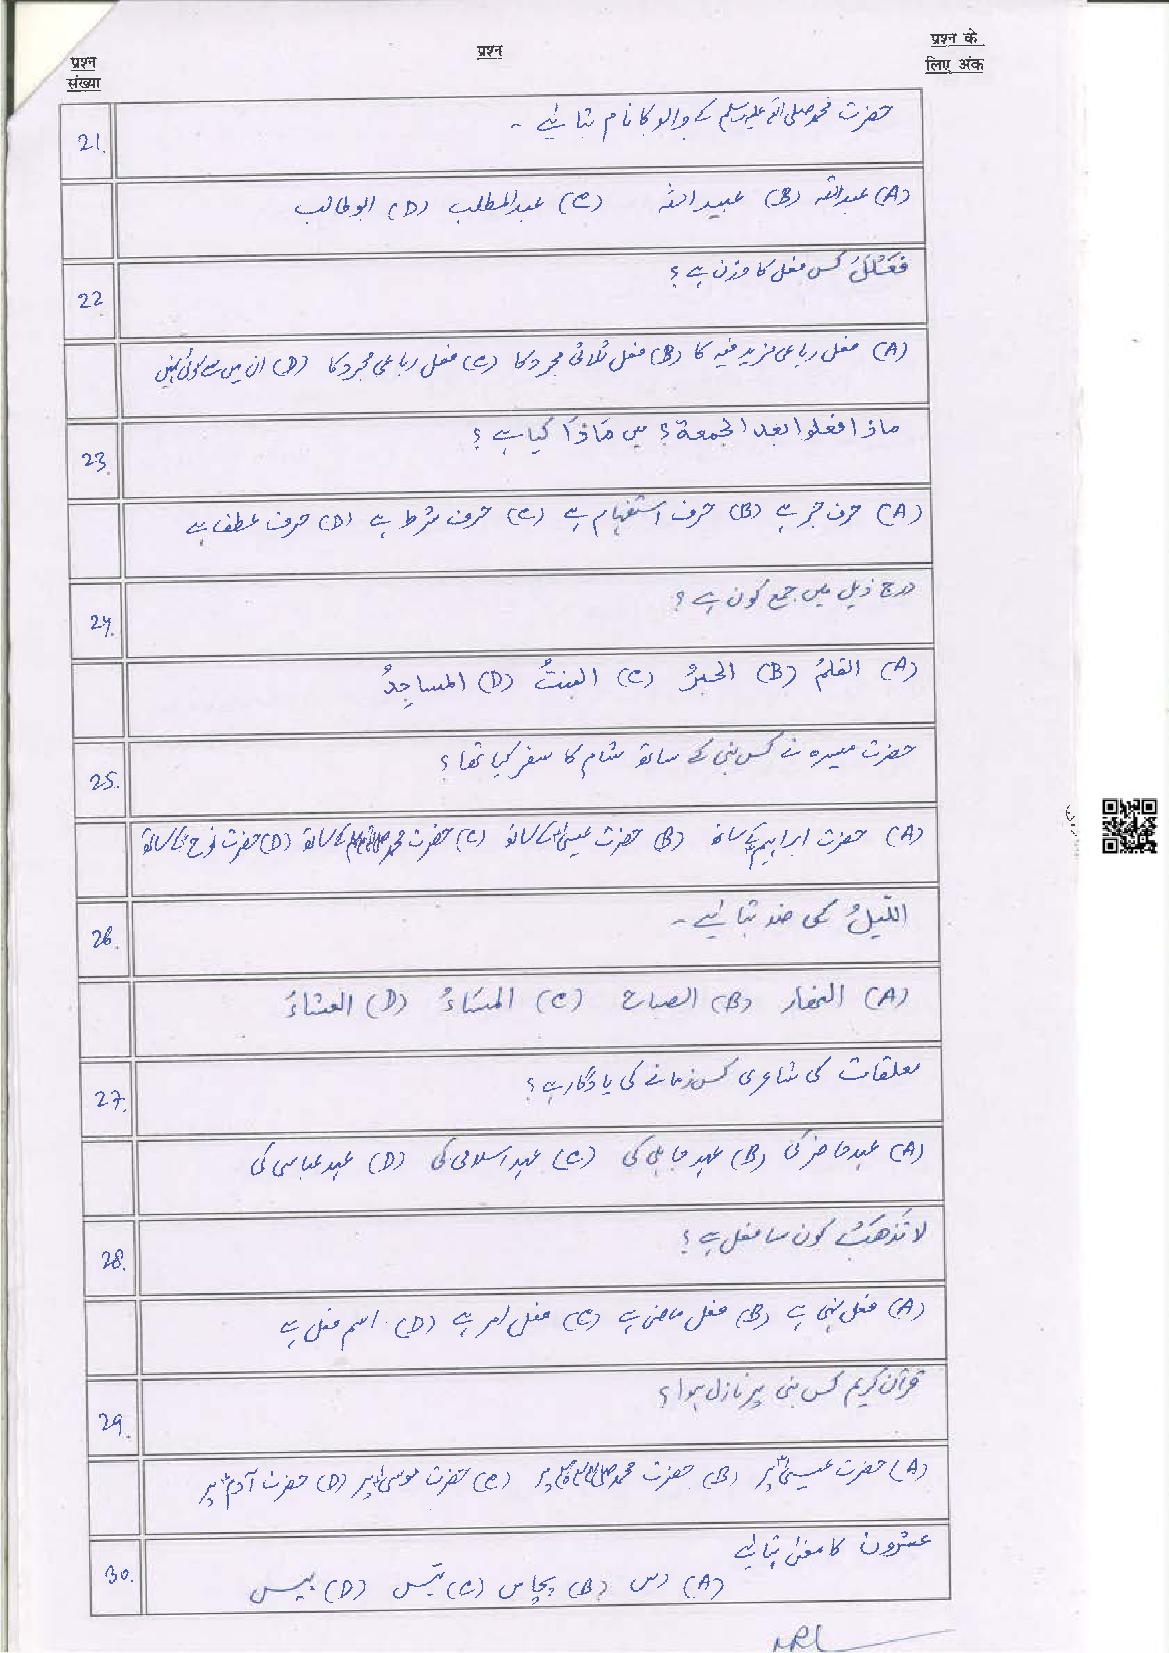 प्रश्न संख्या
प्रश्न
प्रश्न के लिए अंक
21.
حضرت محمد صلی اللہ علیہ وسلم کے والد کا نام بتائیے ۔
(A) عبداللہ (B) عبید اللہ (C) عبدالمطلب (D) ابوطالب
22.
فَعْلَلَ کس فعل کا وزن ہے؟
(A) فعل رباعی مزید فیہ کا (B) فعل ثلاثی مجرد کا (C) فعل رباعی مجرد کا (D) ان میں سے کوئی نہیں
23.
ماذا فعلوا بعد الجمعة؟ میں مَاذَا کیا ہے ؟
(A) حرف جر ہے (B) حرف استفہام ہے (C) حرف شرط ہے (D) حرف عطف ہے
24.
درج ذیل میں جمع کون ہے؟
(A) القلمُ (B) الحبرُ (C) البنتُ (D) المساجِدُ
25.
حضرت میسرہ نے کس نبی کے ساتھ شام کا سفر کیا تھا ؟
(A) حضرت ابراہیمؑ کے ساتھ (B) حضرت عیسیٰؑ کے ساتھ (C) حضرت محمد صلی اللہ علیہ وسلم کے ساتھ (D) حضرت نوحؑ کے ساتھ
26.
اللَّيلُ کی ضد بتائیے ۔
(A) النھار (B) الصباح (C) المسَاءُ (D) العشاءُ
27.
معلقات کی شاعری کس زمانے کی یادگار ہے؟
(A) عہد حاضر کی (B) عہد جاہلی کی (C) عہد اسلامی کی (D) عہد عباسی کی
28.
لا تَذهَبْ کون سا فعل ہے ؟
(A) فعل نہی ہے (B) فعل ماضی ہے (C) فعل امر ہے (D) اسم فعل ہے
29.
قرآن کریم کس نبی پر نازل ہوا؟
(A) حضرت عیسیٰؑ پر (B) حضرت محمد صلی اللہ علیہ وسلم پر (C) حضرت موسیٰؑ پر (D) حضرت آدمؑ پر
30.
عشرون کا معنیٰ بتائیے
(A) دس (B) پچاس (C) تیس (D) بیس